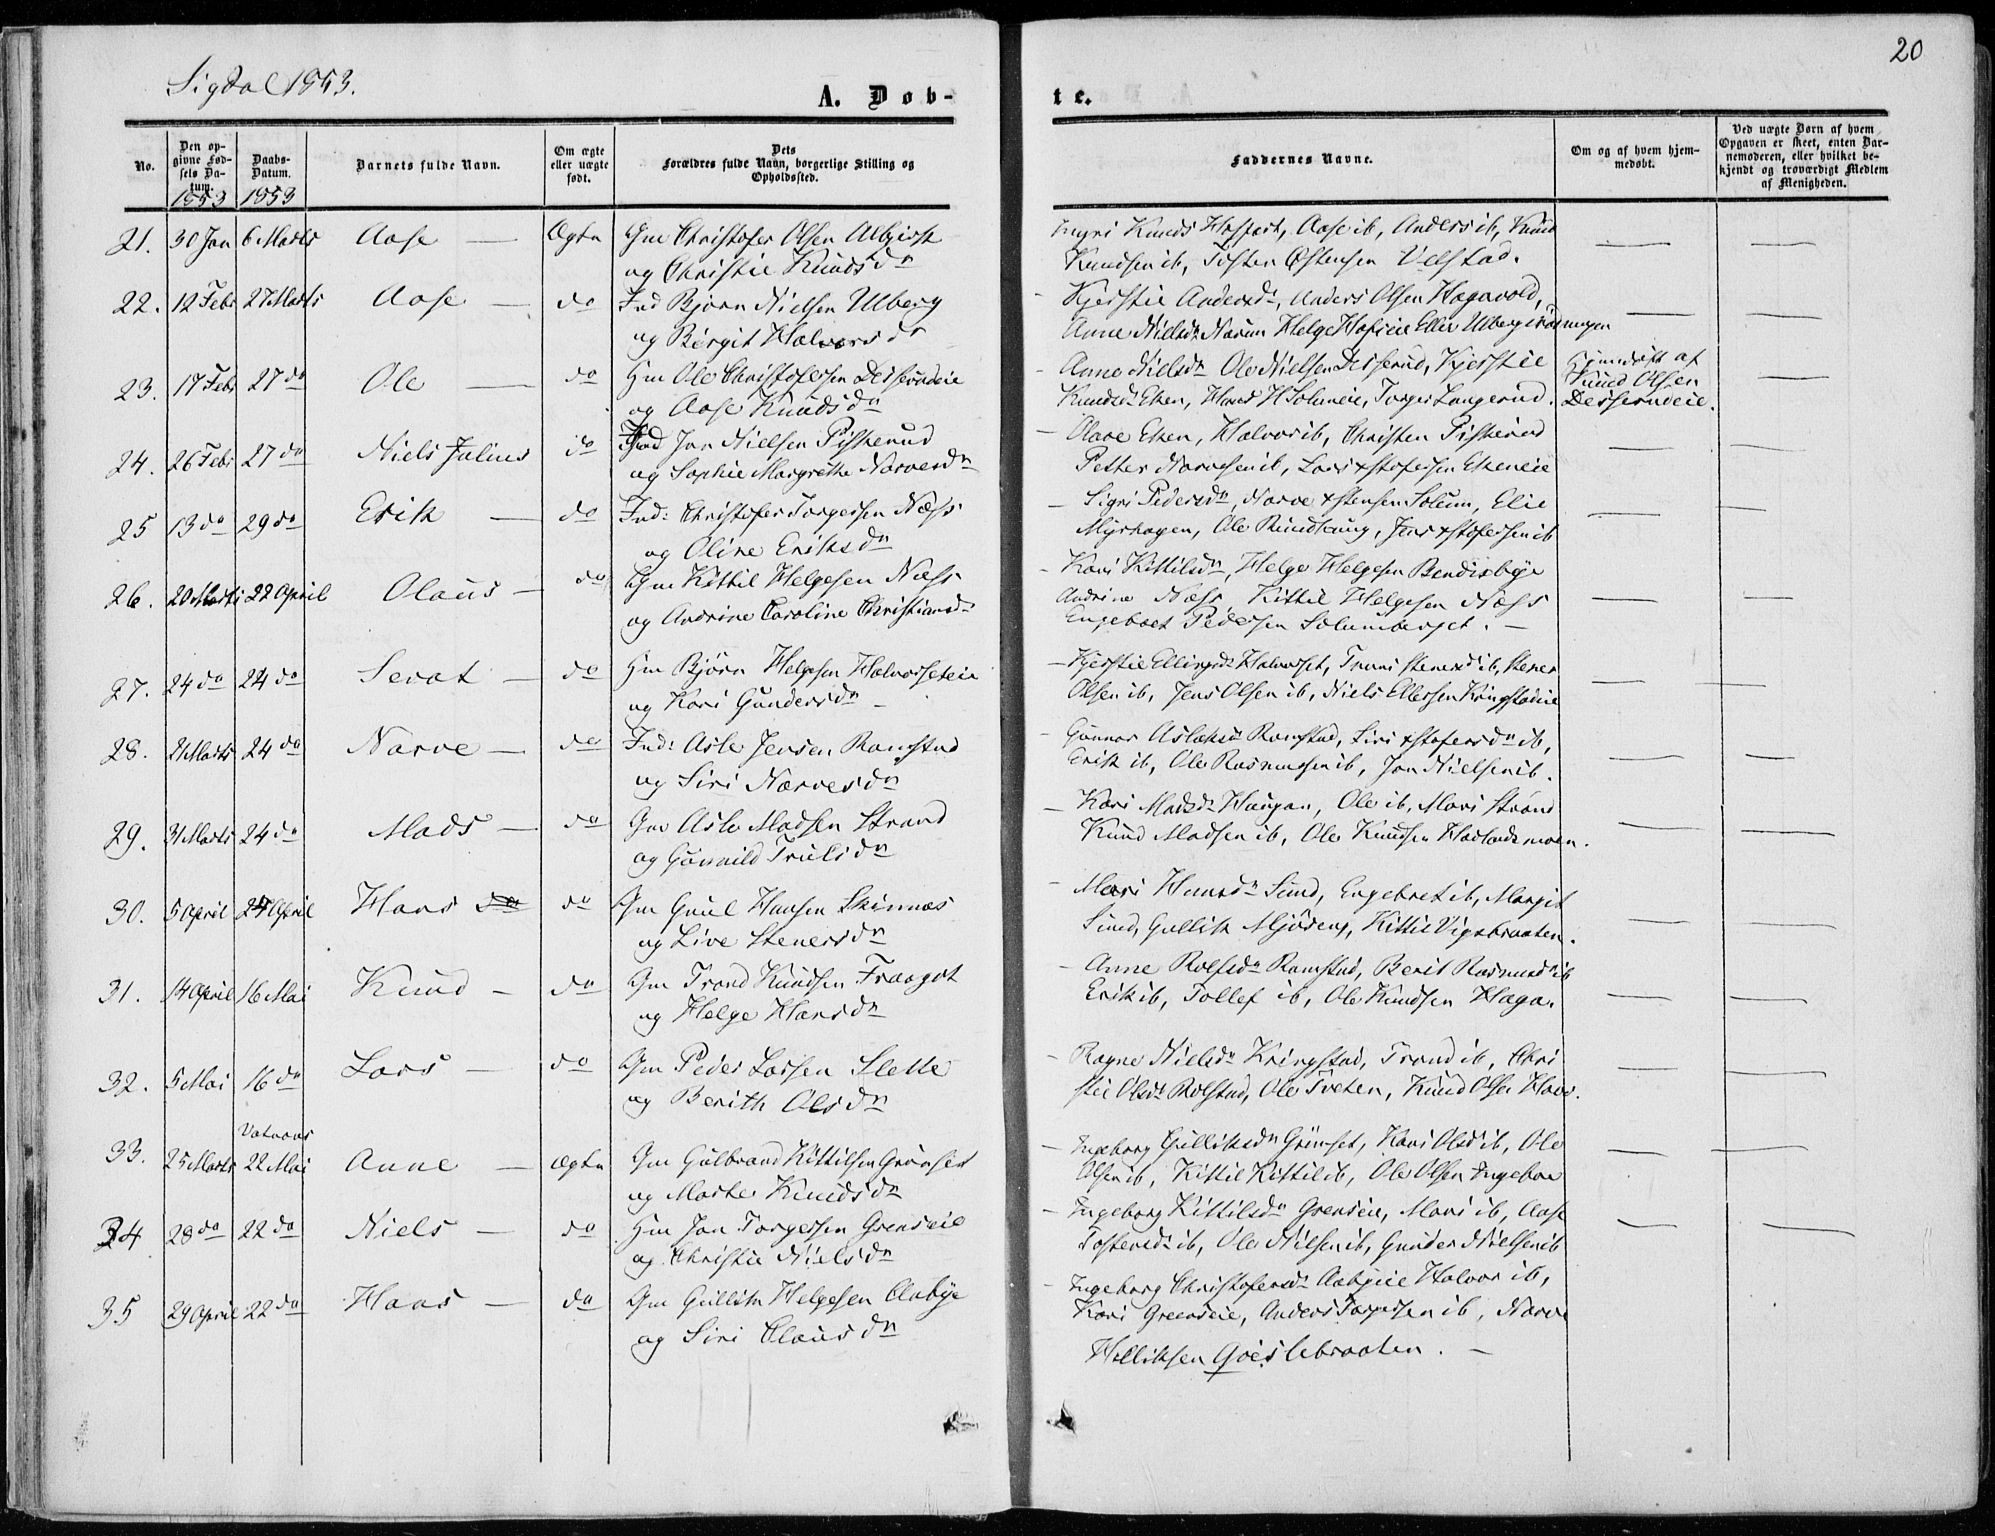 20
Sigdal 1853.
A. Døb-
te.
No.
Den op-
givne Fød-
sels Da-
tum.
1853
Daabs-
Datum.
1853
Barnets fulde Navn.
Om ægte
eller uægte
født.
Dets
Forældres fulde Navn, borgerlige Stilling og
Opholdssted.
Faddernes Navne.
Om og af hvem hjem-
medøbt.
Ved uægte Børn af hvem
Opgaven er skeet, enten Bar-
nemoderen, eller hvilket be-
kjendt og troværdigt Medlem
af Menigheden.
21. 30 Jan 6 Marts Aase — Ægte Gm Christofer Olsen
og Christie Knudsdn
Ingri Knuds Aase ib, Anders ib, Knud
Knudsen ib, Tosten Østensen Velstad.
22. 12 Febr 27 Marts Aase — do Ind Bjørn Nielsen Ulberg
og Birgit Halvorsdn
Kjerstie Andersdn, Anders Olsen Hagavold,
Anne Nielsdn Narum Helge
23. 17 Febr 27 do Ole — do Hm Ole Christofersen Desserudeie
og Aase Knudsdn
Anne Nielsdn Ole Nielsen Desserud, Kjerstie
Knudsdn Eken, Hans H Solumeie, Torger Langerud.
Hjemdøbt af
Knud Olsen
Desserudeie.
24. 26 Febr 27 do Niels Julius do Ind Jan Nielsen Piskerud
og Sophie Margrethe Narvesdn
Olave Eken, Halvor ib, Christen Piskerud
Petter Narvesen ib, Lars xstofersen Ekeneie
25 13 do 29 do Erik — do Ind: Christofer Torgersen Næss
og Oline Eriksdn
Sigri Pedersdn, Narve xstensen Solum, Elie
Myrhagen, Ole Rundhaug, Jens xstofersen ib
26. 20 Marts 22 April Olaus — do Gm Kittil Helgesen Næss
og Andrine Caroline Christiansd:
Kari Kittilsdn, Helge Helgesen Bendixbye
Andrine Næss, Kittil Helgesen Næss
Engebret Pedersen Solumberget. —
27. 24 do 24 do Serat — do Hm Bjørn Helgesen Halvorseteie
og Kari Gundersdn —
Kjerstie Ellingsd Halvorset, Truni Stenersd ib, Stener
Olsen ib, Jens Olsen ib, Niels Ellefsen Kringstadeie
28. 2 Marts 24 do Narve — do Ind: Asle Jensen Ramstad
og Siri Narvesdn
Gunnar Aslaksdn Ramstad, Siri xstofersdn ib,
Erik ib, Ole Rasmussen ib, Jan Nielsen ib.
29. 31 Marts 24 do Mads — do Gm Asle Madsen Strand
og Gunnild Trulsdn
Kari Madsdn Haugan, Ole ib, Mari Strand
Knud Madsen ib, Ole Knudsen
30. 5 April 24 April Hans do do Gm Guul Hansen Skinnæs
og Live Stenersdn
Mari Sund, Engebret ib, Margit
Sund, Gullik Mjøvens, Kittil Vigsbraaten.
31. 14 April 16 Mai Knud — do Gm Trond Knudsen Fraagot
og Helge Hansdn
Anne Rolfsdn Ramstad, Berit Rasmusd ib
Erik ib, Tollef ib, Ole Knudsen Haga.
32. 5 Mai 16 do Lars — do Gm Peder Larsen Slette
og Berith Olsdn
Ragne Nielsdn Kringstad, Trond ib, Chri
stie Olsdn Rolstad, Ole Tveten, Knud Olsen Hovs.
33. 25 Marts 22 Mai Anne — Ægte Gm Gulbrand Kittilsen Grønset
og Marte Knudsdn
Ingeborg Gulliksdn Grønset, Kari Olsd ib, Ole
Olsen ib, Kittil Kittils ib, Ole Olsen
34 28 do 22 do Niels — do Hm Jan Torgersen Grenseie
og Christie Nielsdn
Ingeborg Kittilsdn Grenseie, Mari ib, Aase
Tostensd ib, Ole Nilsen ib, Gunder Nielsen ib
35 29 April 22 do Hans — do Gm Gullik Helgesen Aabye
og Siri Clausdn
Ingeborg Christofersdn Aabyeie Halvor ib,
Kari Greenseie, Anders Torgersen ib, Narve
Helliksen Goislebraaten. —